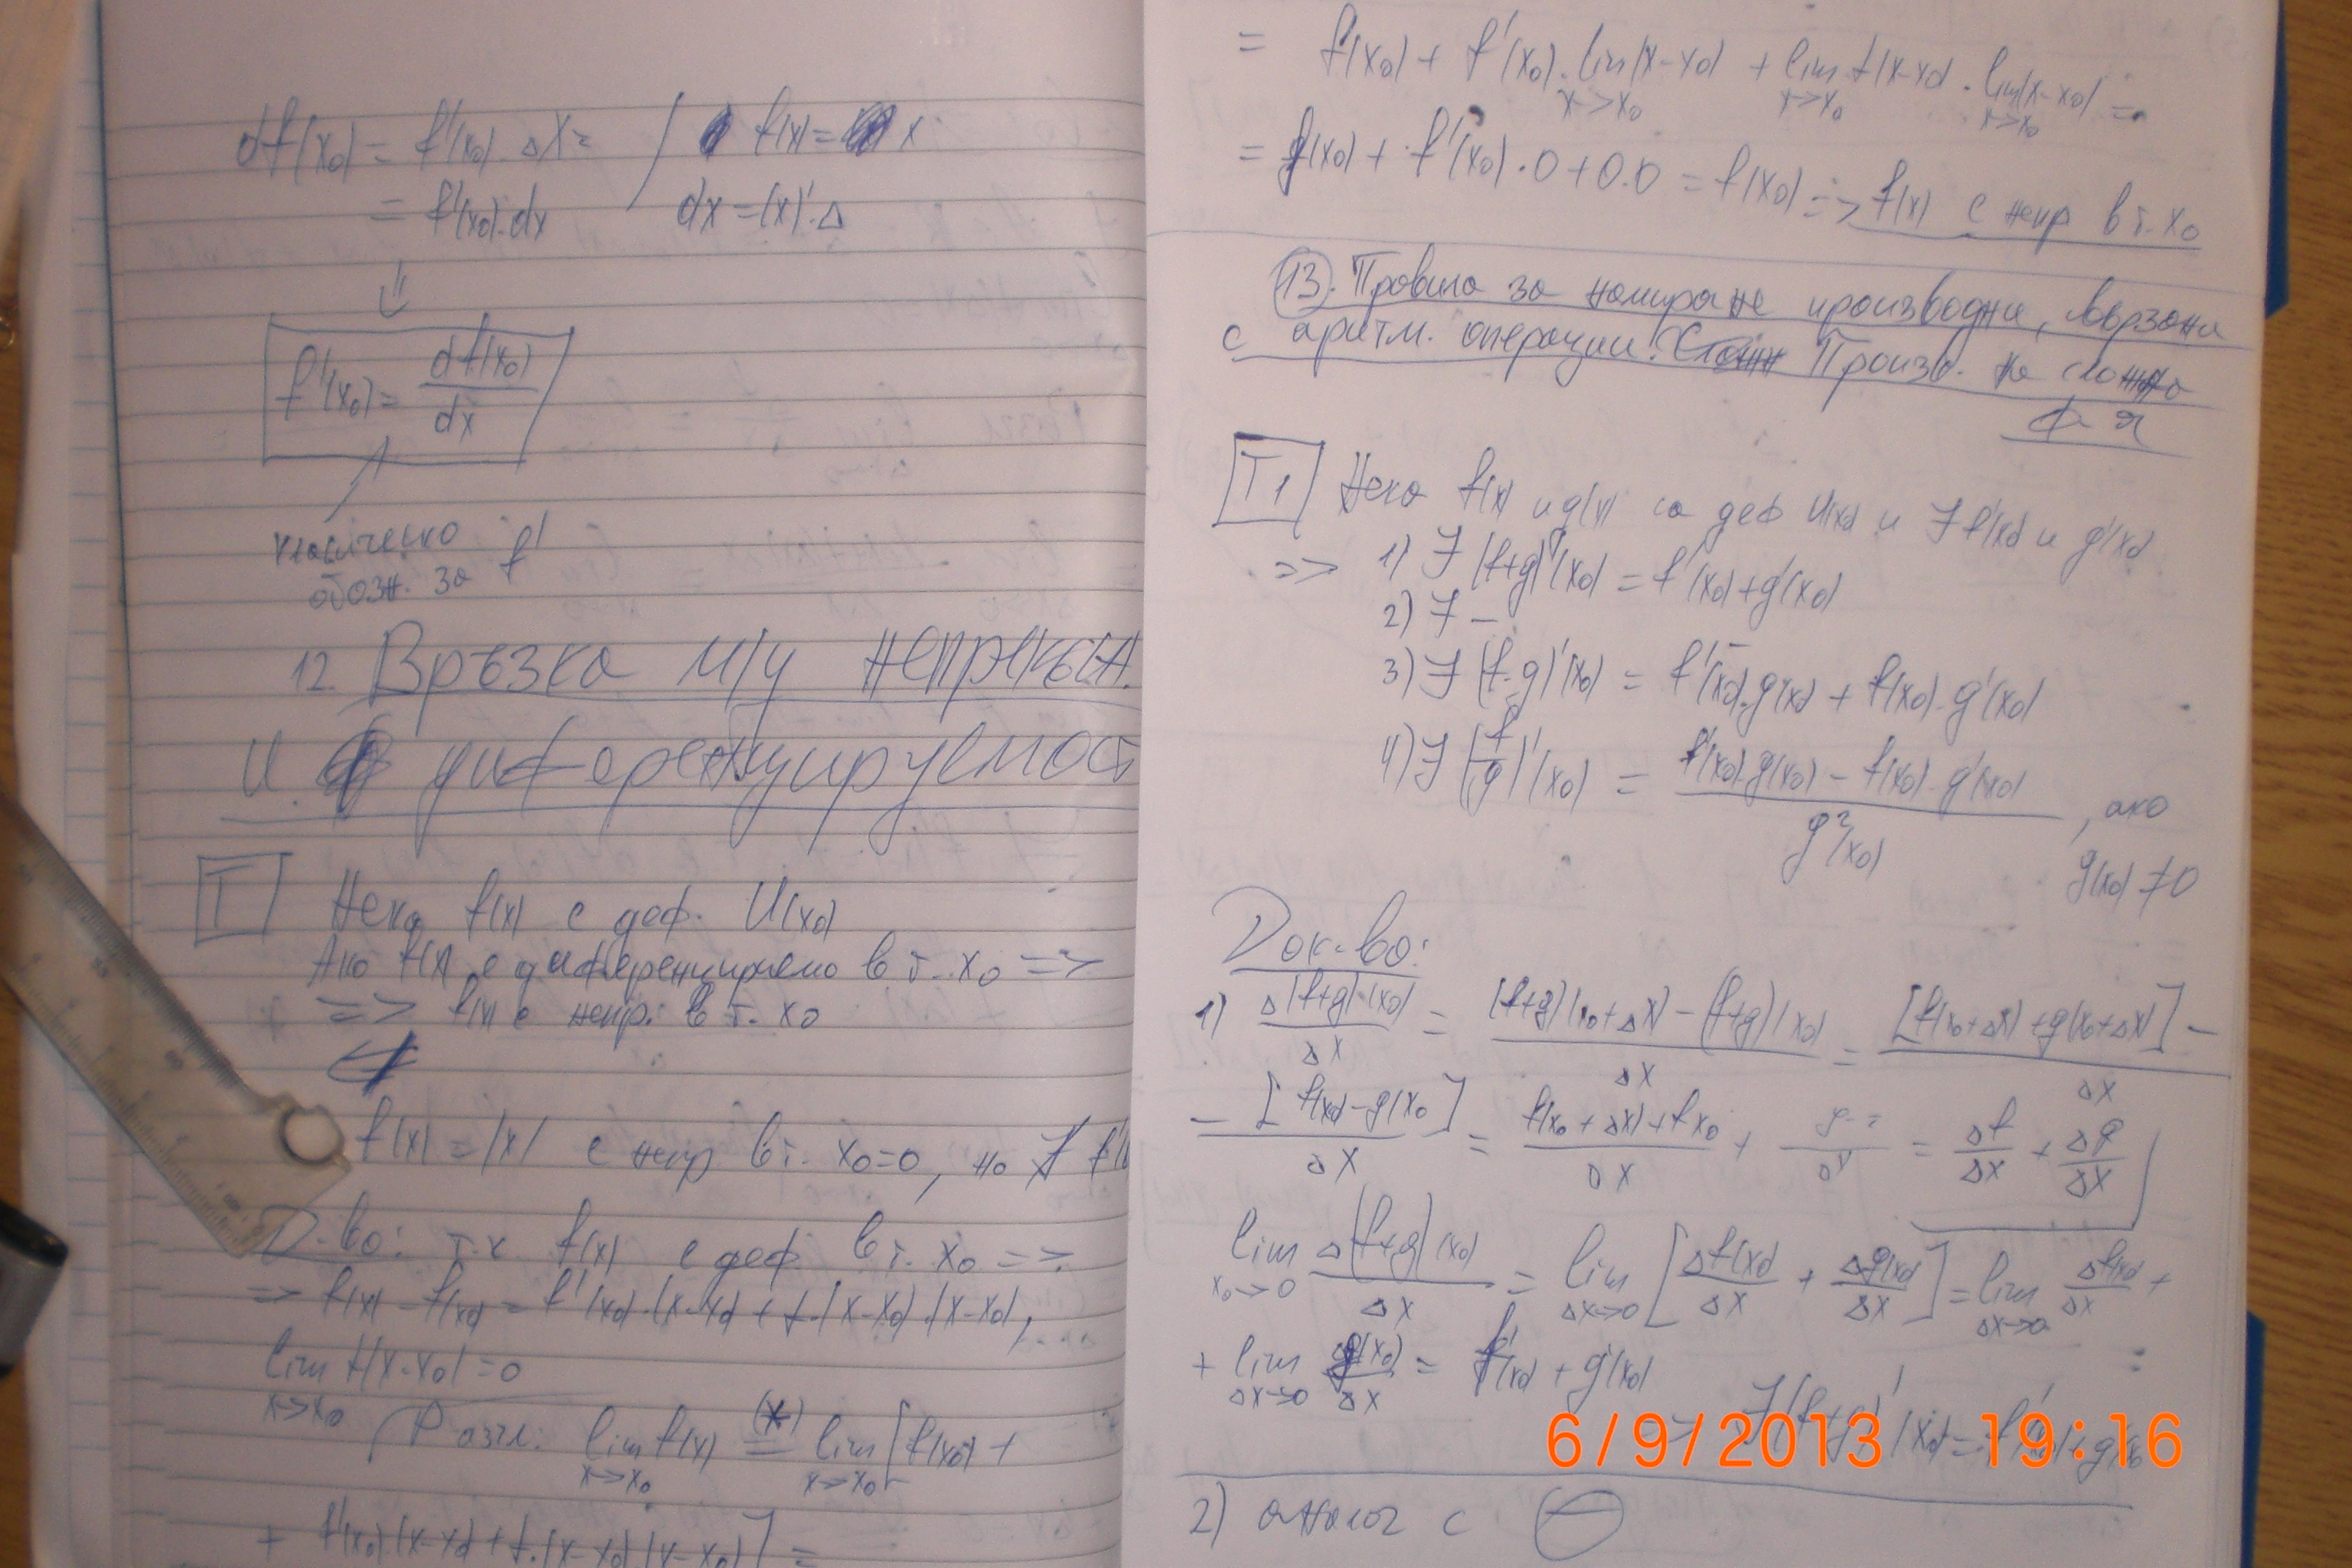 df(x₀) = f'(x₀).Δx =
= f'(x₀).dx
f(x) = x
dx = (x)'.Δ
⇓
f'(x₀) = df(x₀)/dx
класическо
озн. за f'
12. Връзка м/у непрекъсн.
и диференцируемост
T Нека f(x) е деф. U(x₀)
Ако f(x) е диференцируемо в т. x₀ =>
=> f(x) е непр. в т. x₀
f(x) = |x| е непр в т. x₀=0, но ∄ f'(
Д-во: т.к f(x) е деф в т. x₀ =>
=> f(x) - f(x₀) = f'(x₀).(x-x₀) + f.(x-x₀).(x-x₀),
lim f(x-x₀) = 0
x->x₀
Разгл: lim f(x) (*)= lim [f(x₀) +
x->x₀ x->x₀
+ f'(x₀).(x-x₀) + f.(x-x₀)(x-x₀)] =
= f(x₀) + f'(x₀).lim(x-x₀) + lim f(x-x₀).lim(x-x₀) =
x->x₀ x->x₀ x->x₀
= f(x₀) + f'(x₀).0 + 0.0 = f(x₀) => f(x) е непр в т. x₀
13. Правила за намиране производни, вързани
с аритм. операции. Произв. на сложна
ф-я
T1 Нека f(x) и g(x) са деф U(x₀) и ∃ f'(x₀) и g'(x₀)
=> 1) ∃ (f+g)'(x₀) = f'(x₀)+g'(x₀)
2) ∃ -
3) ∃ (f.g)'(x₀) = f'(x₀).g(x₀) + f(x₀).g'(x₀)
4) ∃ (f/g)'(x₀) = (f'(x₀).g(x₀) - f(x₀).g'(x₀))/g²(x₀), ако
g(x₀) ≠ 0
Док-во:
1) Δ(f+g)(x₀)/Δx = ((f+g)(x₀+Δx) - (f+g)(x₀))/Δx = [f(x₀+Δx)+g(x₀+Δx)] -
- [f(x₀)-g(x₀)]/Δx = (f(x₀+Δx)+fx₀)/Δx + = Δf/Δx + Δg/Δx
lim Δ(f+g)(x₀)/Δx = lim [Δf(x₀)/Δx + Δg(x₀)/Δx] = lim Δf(x₀)/Δx +
x₀->0 Δx->0 Δx->0
+ lim g(x₀)/Δx = f'(x₀) + g'(x₀)
Δx->0
=> ∃(f+g)'(x₀) = f'(x₀)+g'(x₀)
6/9/2013 19:16
2) аналог с ⊖